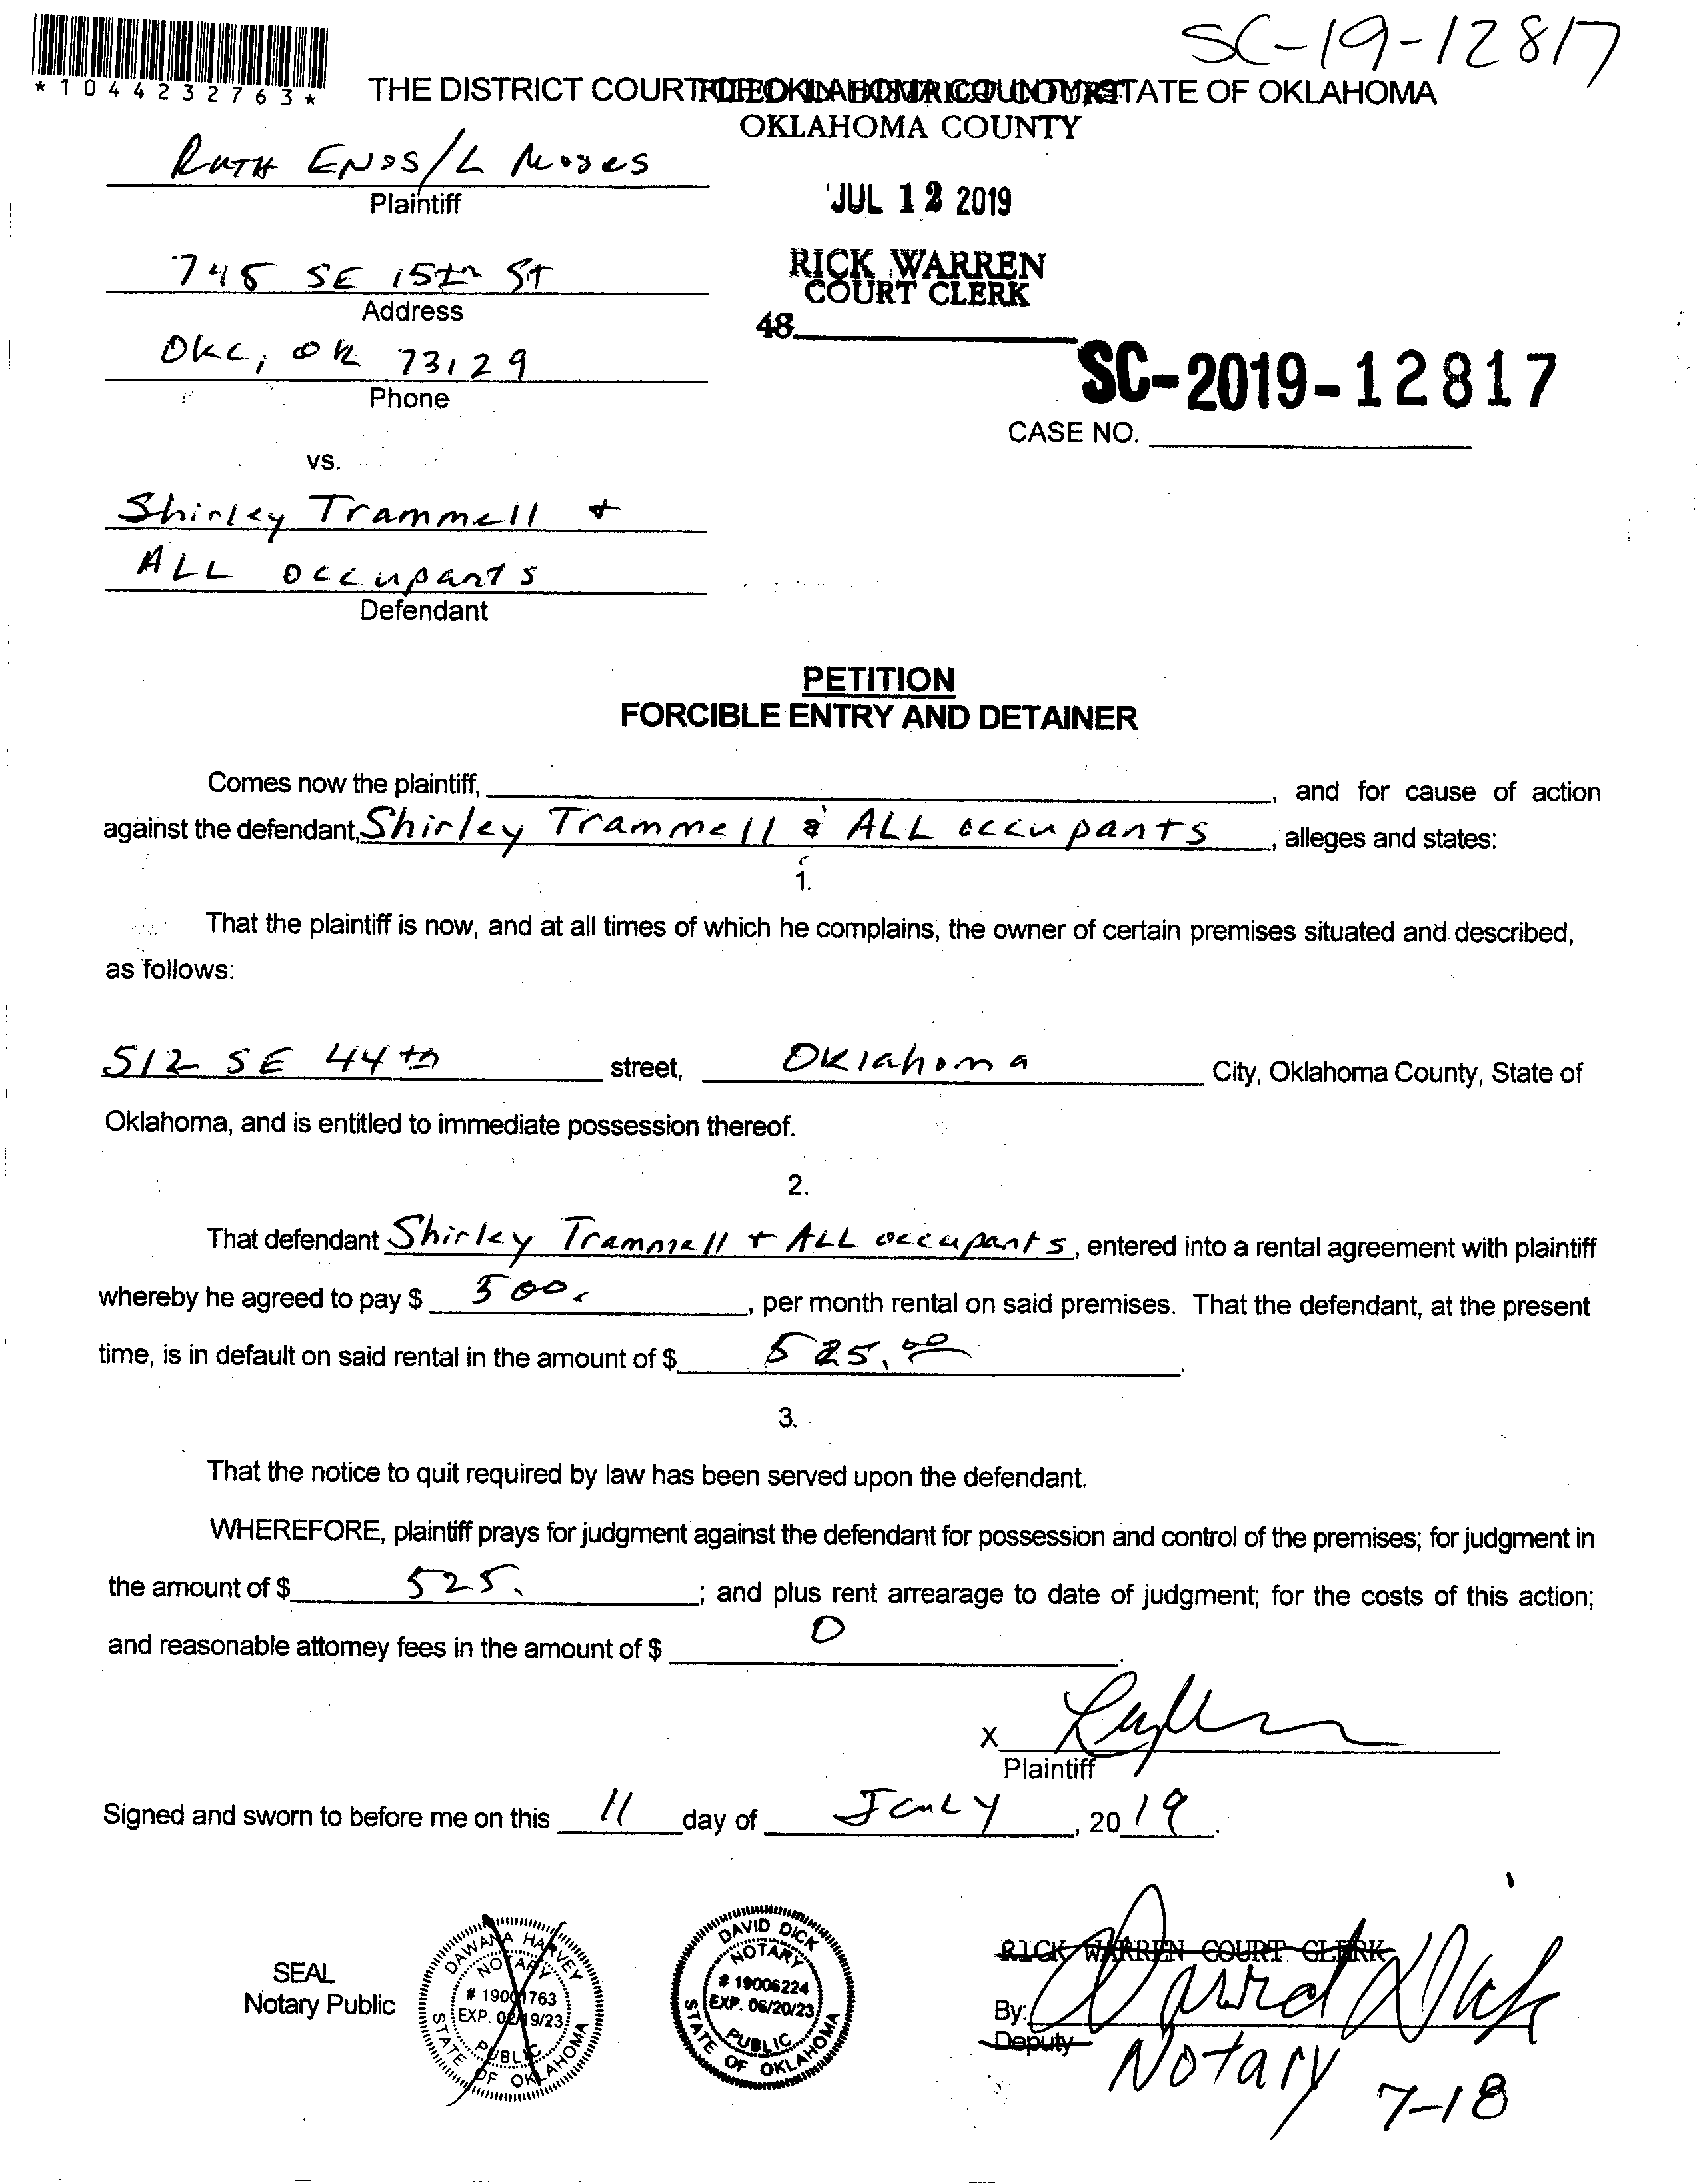 SC-19-12817
*1044232763*
THE DISTRICT COURT STATE OF OKLAHOMA
OKLAHOMA COUNTY
RUTH ENOS/L Moses
Plaintiff
JUL 12 2019
745 SE 15th ST
Address
RICK WARREN
COURT CLERK
48
OKC, OK 73129
Phone
SC-2019-12817
CASE NO.
vs.
Shirley Trammell +
ALL occupants
Defendant
PETITION
FORCIBLE ENTRY AND DETAINER
Comes now the plaintiff, , and for cause of action
against the defendant, Shirley Trammell & ALL occupants, alleges and states:
1.
That the plaintiff is now, and at all times of which he complains, the owner of certain premises situated and described,
as follows:
512 SE 44th street, Oklahoma City, Oklahoma County, State of
Oklahoma, and is entitled to immediate possession thereof.
2.
That defendant Shirley Trammell + ALL occupants, entered into a rental agreement with plaintiff
whereby he agreed to pay $ 500. , per month rental on said premises. That the defendant, at the present
time, is in default on said rental in the amount of $ 525.00 .
3.
That the notice to quit required by law has been served upon the defendant.
WHEREFORE, plaintiff prays for judgment against the defendant for possession and control of the premises; for judgment in
the amount of $ 525. ; and plus rent arrearage to date of judgment; for the costs of this action;
and reasonable attorney fees in the amount of $ 0 .
X
Plaintiff
Signed and sworn to before me on this 11 day of July, 2019.
SEAL
Notary Public
DAWANA HARVEY
NOTARY
# 19001763
EXP. 02/19/23
PUBLIC
STATE OF OKLAHOMA
DAVID DICK
NOTARY
# 19006224
EXP. 06/20/23
PUBLIC
STATE OF OKLAHOMA
RICK WARREN COURT CLERK
By: David Dick
Deputy
Notary
7-18